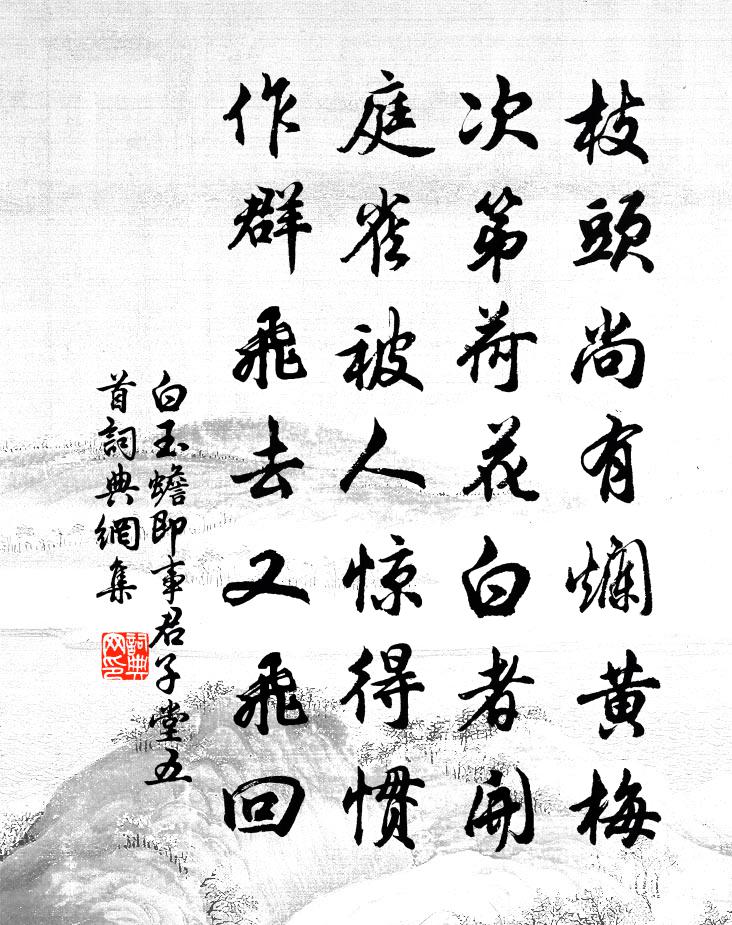 枝頭尚有爛黄梅
次第荷花白者開
庭雀被人惊得慣
作群飛去又飛回
白玉蟾即事君子堂五
首詞典網集
詞典
网印